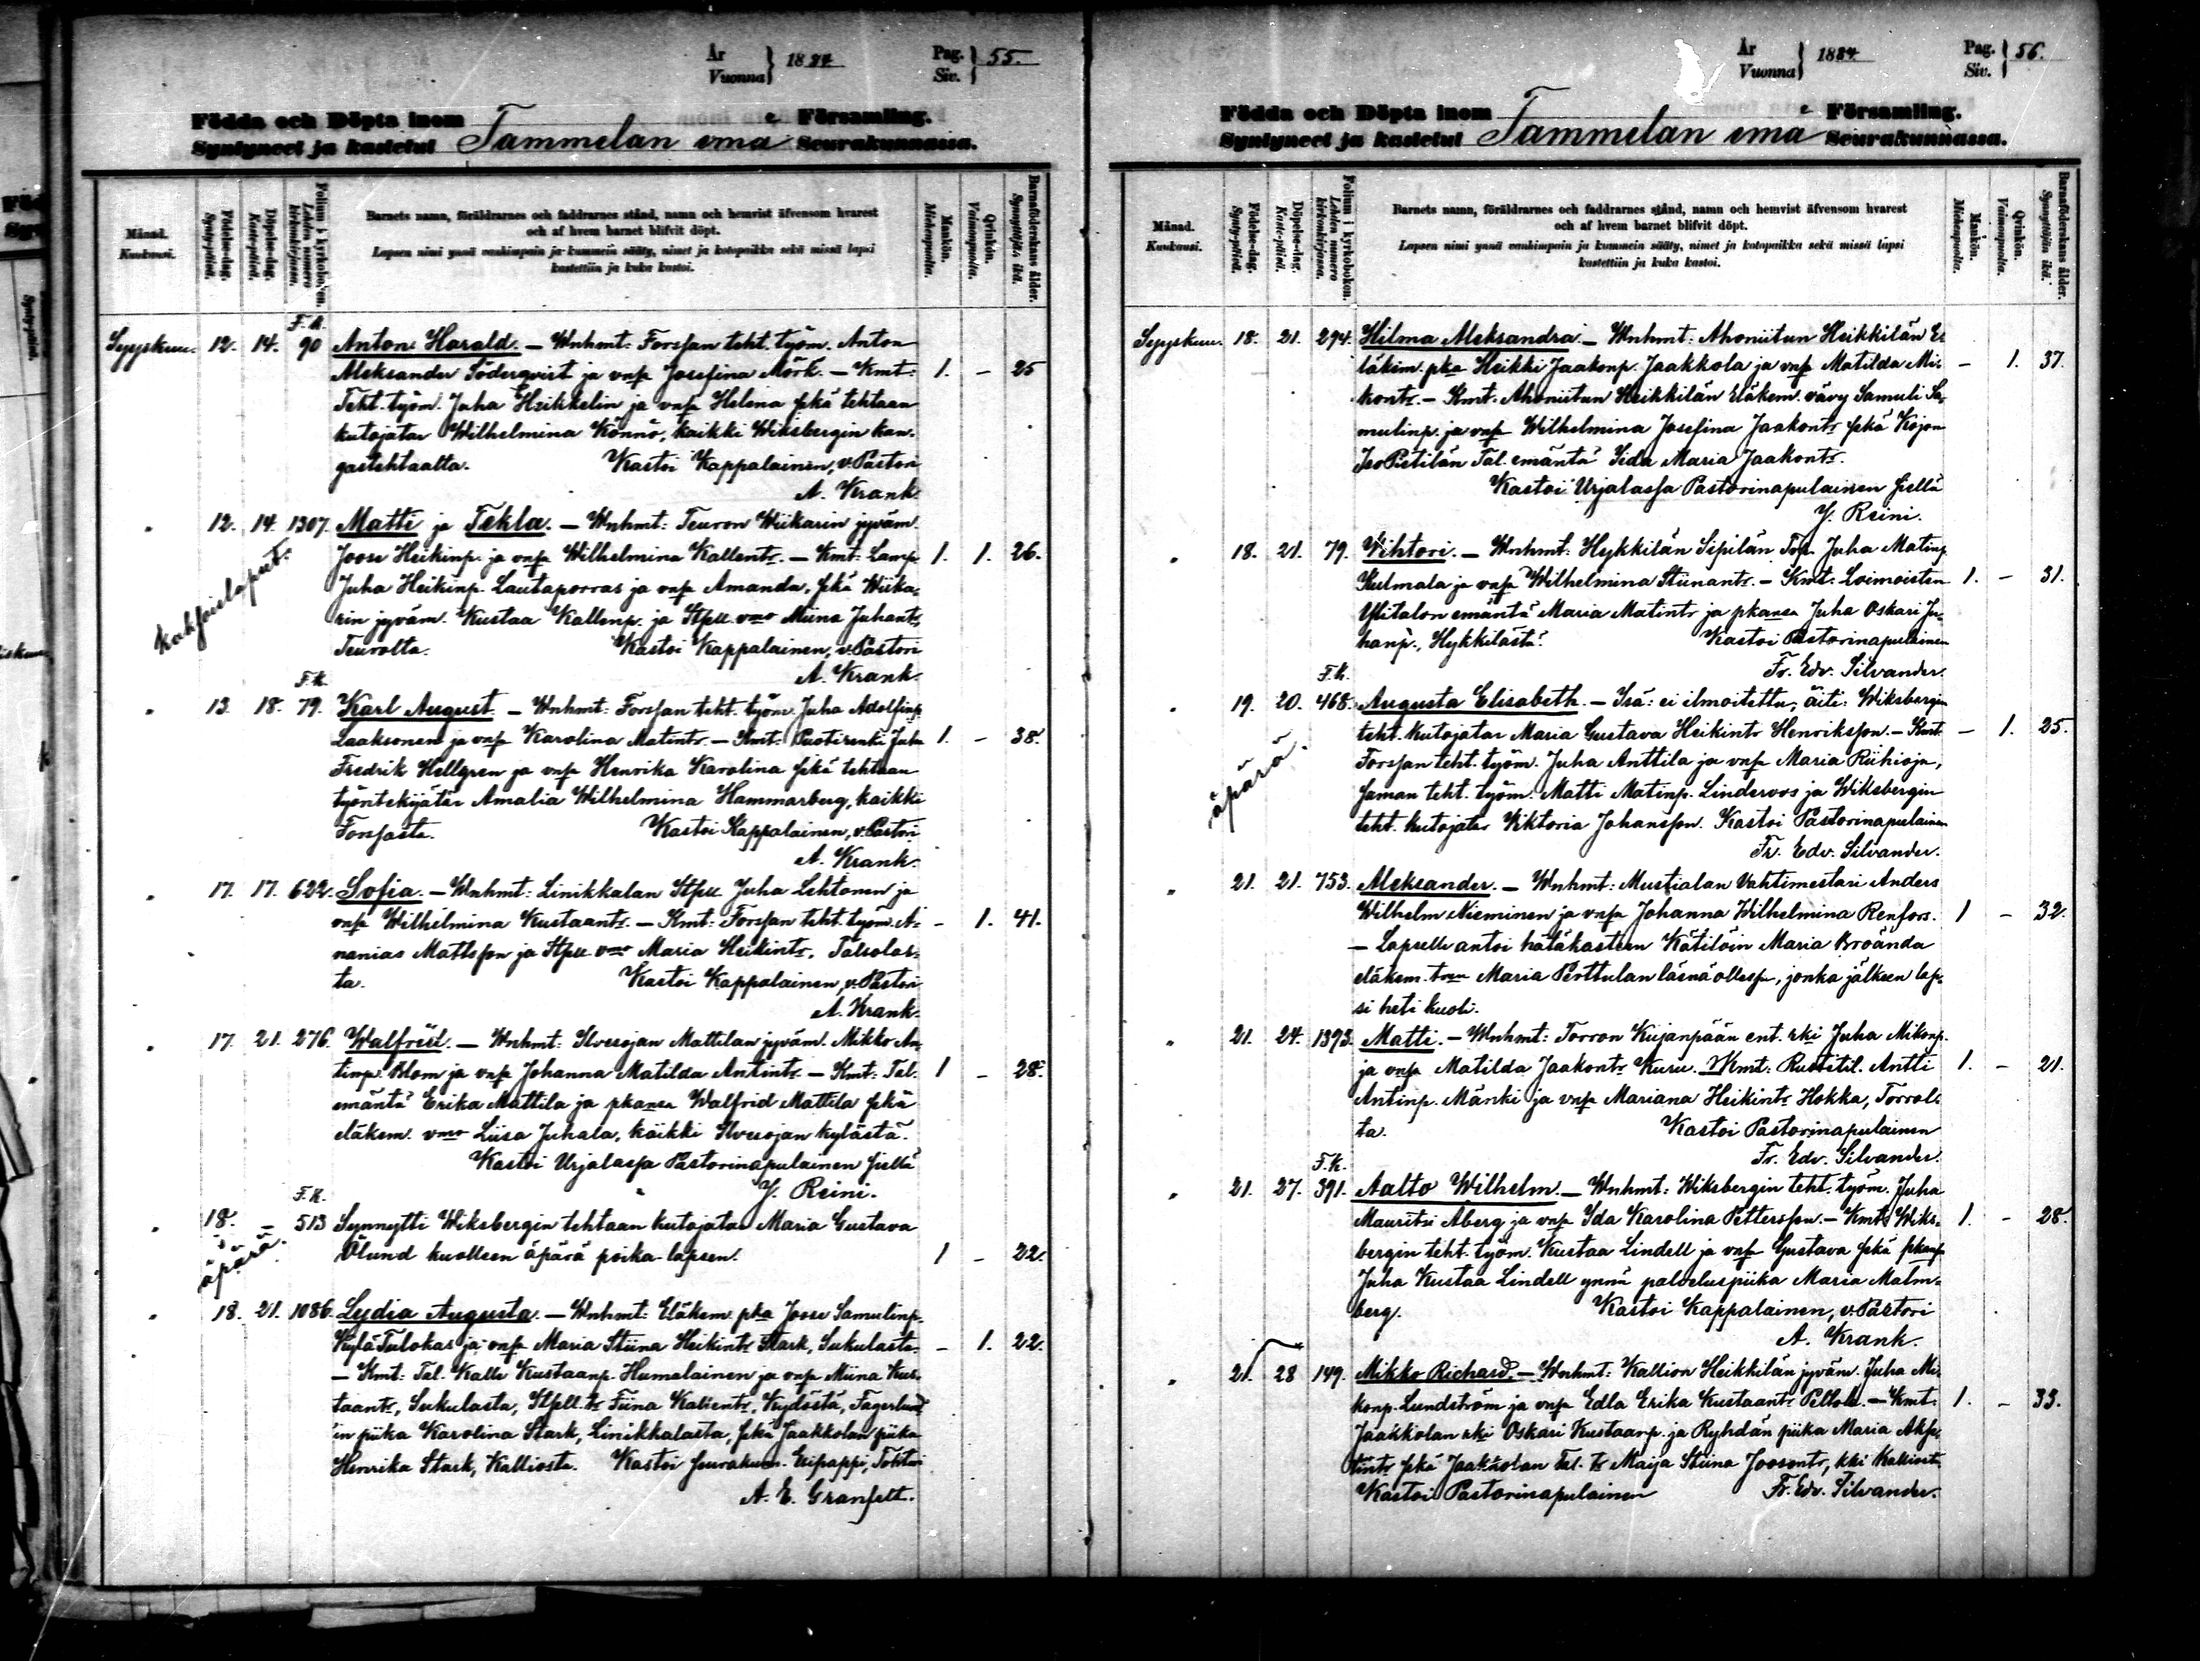 År
Vuonna } 1884
Pag.
Siv. } 55.
Födda och Döpta inom
Syntyneet ja kastetut Tammelan ema
e Församling.
Seurakunnassa.
Månad.
Kuukausi.
Födelse-dag.
Synty-päivä.
Döpelse-dag.
Kaste-päivä.
Folium i kyrkoboken.
Lehden numero
kirkonkirjassa.
Barnets namn, föräldrarnes och faddrarnes stånd, namn och hemvist äfvensom hvarest
och af hvem barnet blifvit döpt.
Lapsen nimi ynnä vanhimpain ja kummein sääty, nimet ja kotopaikka sekä missä lapsi
kastettiin ja kuka kastoi.
Mankön.
Miehenpuolta.
Qvinkön.
Vaimonpuolta.
Barnaföderskans ålder.
Synnyttäjän ikä.
F. k.
Syyskuu. 12. 14. 90 Anton Harald. — Wnhmt: Forssan teht. työm. Anton
Aleksander Söderqvist ja vnsa Josefina Mörk. — Kmt: 1. — 25
Teht. työm. Juha Heikkelin ja vnsa Helena sekä tehtaan
kutojatar Wilhelmina Könnö, kaikki Wiksbergin kan-
gastehtaalta. Kastoi Kappalainen, v. Pastori
A. Krank.
" 12. 14. 1307. Matti ja Tekla. — Wnhmt: Teuron Wiikarin jyväm.
kaksoislapset.
Joose Heikinp. ja vnsa Wilhelmina Kallentr. — Kmt: Lamp. 1. 1. 26.
Juha Heikinp. Lautaporras ja vnsa Amanda, sekä Wiika-
rin jyväm. Kustaa Kallenp. ja Itsell. vmo Miina Juhantr,
Teurolta. Kastoi Kappalainen, v. Pastori
A. Krank.
F. k.
" 13. 18. 79. Karl August. — Wnhmt: Forssan teht. työm. Juha Adolfinp.
Laaksonen ja vnsa Karolina Matintr. — Kmt: Puotirenki Juha 1. — 38.
Fredrik Hellgren ja vnsa Henrika Karolina sekä tehtaan
työntekijätär Amalia Wilhelmina Hammarberg, kaikki
Forssasta. Kastoi Kappalainen, v. Pastori
A. Krank.
" 17. 17. 622. Sofia. — Wnhmt: Linikkalan Itsell. Juha Lehtonen ja
vnsa Wilhelmina Kustaantr. — Kmt: Forssan teht. työm. A- — 1. 41.
nanias Mattsson ja Itsell. vmo Maria Heikintr, Talsolas-
ta. Kastoi Kappalainen, v. Pastori
A. Krank.
" 17. 21. 276. Walfrid. — Wnhmt: Ilvesojan Mattilan jyväm. Mikko An-
tinp. Blom ja vnsa Johanna Matilda Antintr. — Kmt: Tal. 1 — 28.
emäntä Erika Mattila ja pkansa Walfrid Mattila sekä
eläkem. vmo Liisa Juhala, kaikki Ilvesojan kylästä.
Kastoi Urjalassa Pastorinapulainen siellä
Y. Reini.
F. k.
" 18. — 513 Synnytti Wiksbergin tehtaan kutojatar Maria Gustava
äpärä.
Ölund kuolleen äpärä poika-lapsen. 1 — 22.
" 18. 21. 1086. Lydia Augusta. — Wnhmt: Eläkem. pka Joose Samulinp.
Kylä Tulokas ja vnsa Maria Stiina Heikintr Stark, Sukulasta. — 1. 22.
— Kmt: Tal. Kalle Kustaanp. Humalainen ja vnsa Miina Kus-
taantr, Sukulasta, Itsell. tr Fiina Kallentr, Kydöstä, Fagerlund
in piika Karolina Stark, Linikkalasta, sekä Jaakkolan piika
Henrika Stark, Kalliosta. Kastoi seurakun. Esipappi, Tohtori
A. E. Granfelt.
År
Vuonna } 1884
Pag.
Siv. } 56.
Födda och Döpta inom
Syntyneet ja kastetut Tammelan ema
e Församling.
Seurakunnassa.
Månad.
Kuukausi.
Födelse-dag.
Synty-päivä.
Döpelse-dag.
Kaste-päivä.
Folium i kyrkoboken.
Lehden numero
kirkonkirjassa.
Barnets namn, föräldrarnes och faddrarnes stånd, namn och hemvist äfvensom hvarest
och af hvem barnet blifvit döpt.
Lapsen nimi ynnä vanhimpain ja kummein sääty, nimet ja kotopaikka sekä missä lapsi
kastettiin ja kuka kastoi.
Mankön.
Miehenpuolta.
Qvinkön.
Vaimonpuolta.
Barnaföderskans ålder.
Synnyttäjän ikä.
Syyskuu. 18. 21. 294. Hilma Aleksandra. — Wnhmt: Ahoniitun Heikkilän E-
läkem. pka Heikki Jaakonp. Jaakkola ja vnsa Matilda Mi- — 1. 37.
kontr. — Kmt: Ahoniitun Heikkilän Eläkem. vävy Samuli Sa-
mulinp. ja vnsa Wilhelmina Josefina Jaakontr sekä Kojon
Iso Pietilän Tal. emäntä Iida Maria Jaakontr.
Kastoi Urjalassa Pastorinapulainen siellä
Y. Reini.
" 18. 21. 79. Wihtori. — Wnhmt: Hykkilän Sipilän Torp. Juha Matinp.
Kulmala ja vnsa Wilhelmina Stiinantr. — Kmt: Loimoisten 1. — 31.
Ylitalon emäntä Maria Matintr ja pkansa Juha Oskari Ju-
hanp., Hykkilästä. Kastoi Pastorinapulainen
Fr. Edv. Silvander.
F. k.
" 19. 20. 468. Augusta Elisabeth. — Isä: ei ilmoitettu, äiti: Wiksbergin
äpärä.
teht. kutojatar Maria Gustava Heikintr Henriksson. — Kmt: — 1. 25.
Forssan teht. työm. Juha Anttila ja vnsa Maria Riihioja,
saman teht. työm. Matti Matinp. Linderoos ja Wiksbergin
teht. kutojatar Viktoria Johansson. Kastoi Pastorinapulainen
Fr. Edv. Silvander.
" 21. 21. 753. Aleksander. — Wnhmt: Mustialan Vahtimestari Anders
Wilhelm Nieminen ja vnsa Johanna Wilhelmina Renfors. 1 — 32.
— Lapselle antoi hätäkasteen Kätilöin Maria Broända
eläkem. Maria Perttulan läsnäollessa, jonka jälkeen lap-
si heti kuoli.
" 21. 24. 1393. Matti. — Wnhmt: Torron Kujanpään ent. rki Juha Mikonp.
ja vnsa Matilda Jaakontr Kuru. — Kmt: Rustitil. Antti 1. — 21.
Antinp. Mänki ja vnsa Mariana Heikintr Hokka, Torrols-
ta. Kastoi Pastorinapulainen
Fr. Edv. Silvander.
F. k.
" 21. 27. 391. Aalto Wilhelm. — Wnhmt: Wiksbergin teht. työm. Juha
Mauritsi Åberg ja vnsa Ida Karolina Pettersson. — Kmt: Wiks- 1. — 28.
bergin teht. työm. Kustaa Lindell ja vnsa Gustava sekä pkansa
Juha Kustaa Lindell ynnä palveluspiika Maria Malm-
berg. Kastoi Kappalainen, v. Pastori
A. Krank.
" 21. 28 149. Mikko Richard. — Wnhmt: Kallion Heikkilän jyväm. Juha Mi-
konp. Lundström ja vnsa Edla Erika Kustaantr Pellola. — Kmt: 1. — 33.
Jaakkolan rki Oskari Kustaanp. ja Ryhdän piika Maria
sekä Jaakkolan Tal. tr Maija Stiina Joosentr, kki Kalliost.
Kastoi Pastorinapulainen Fr. Edv. Silvander.